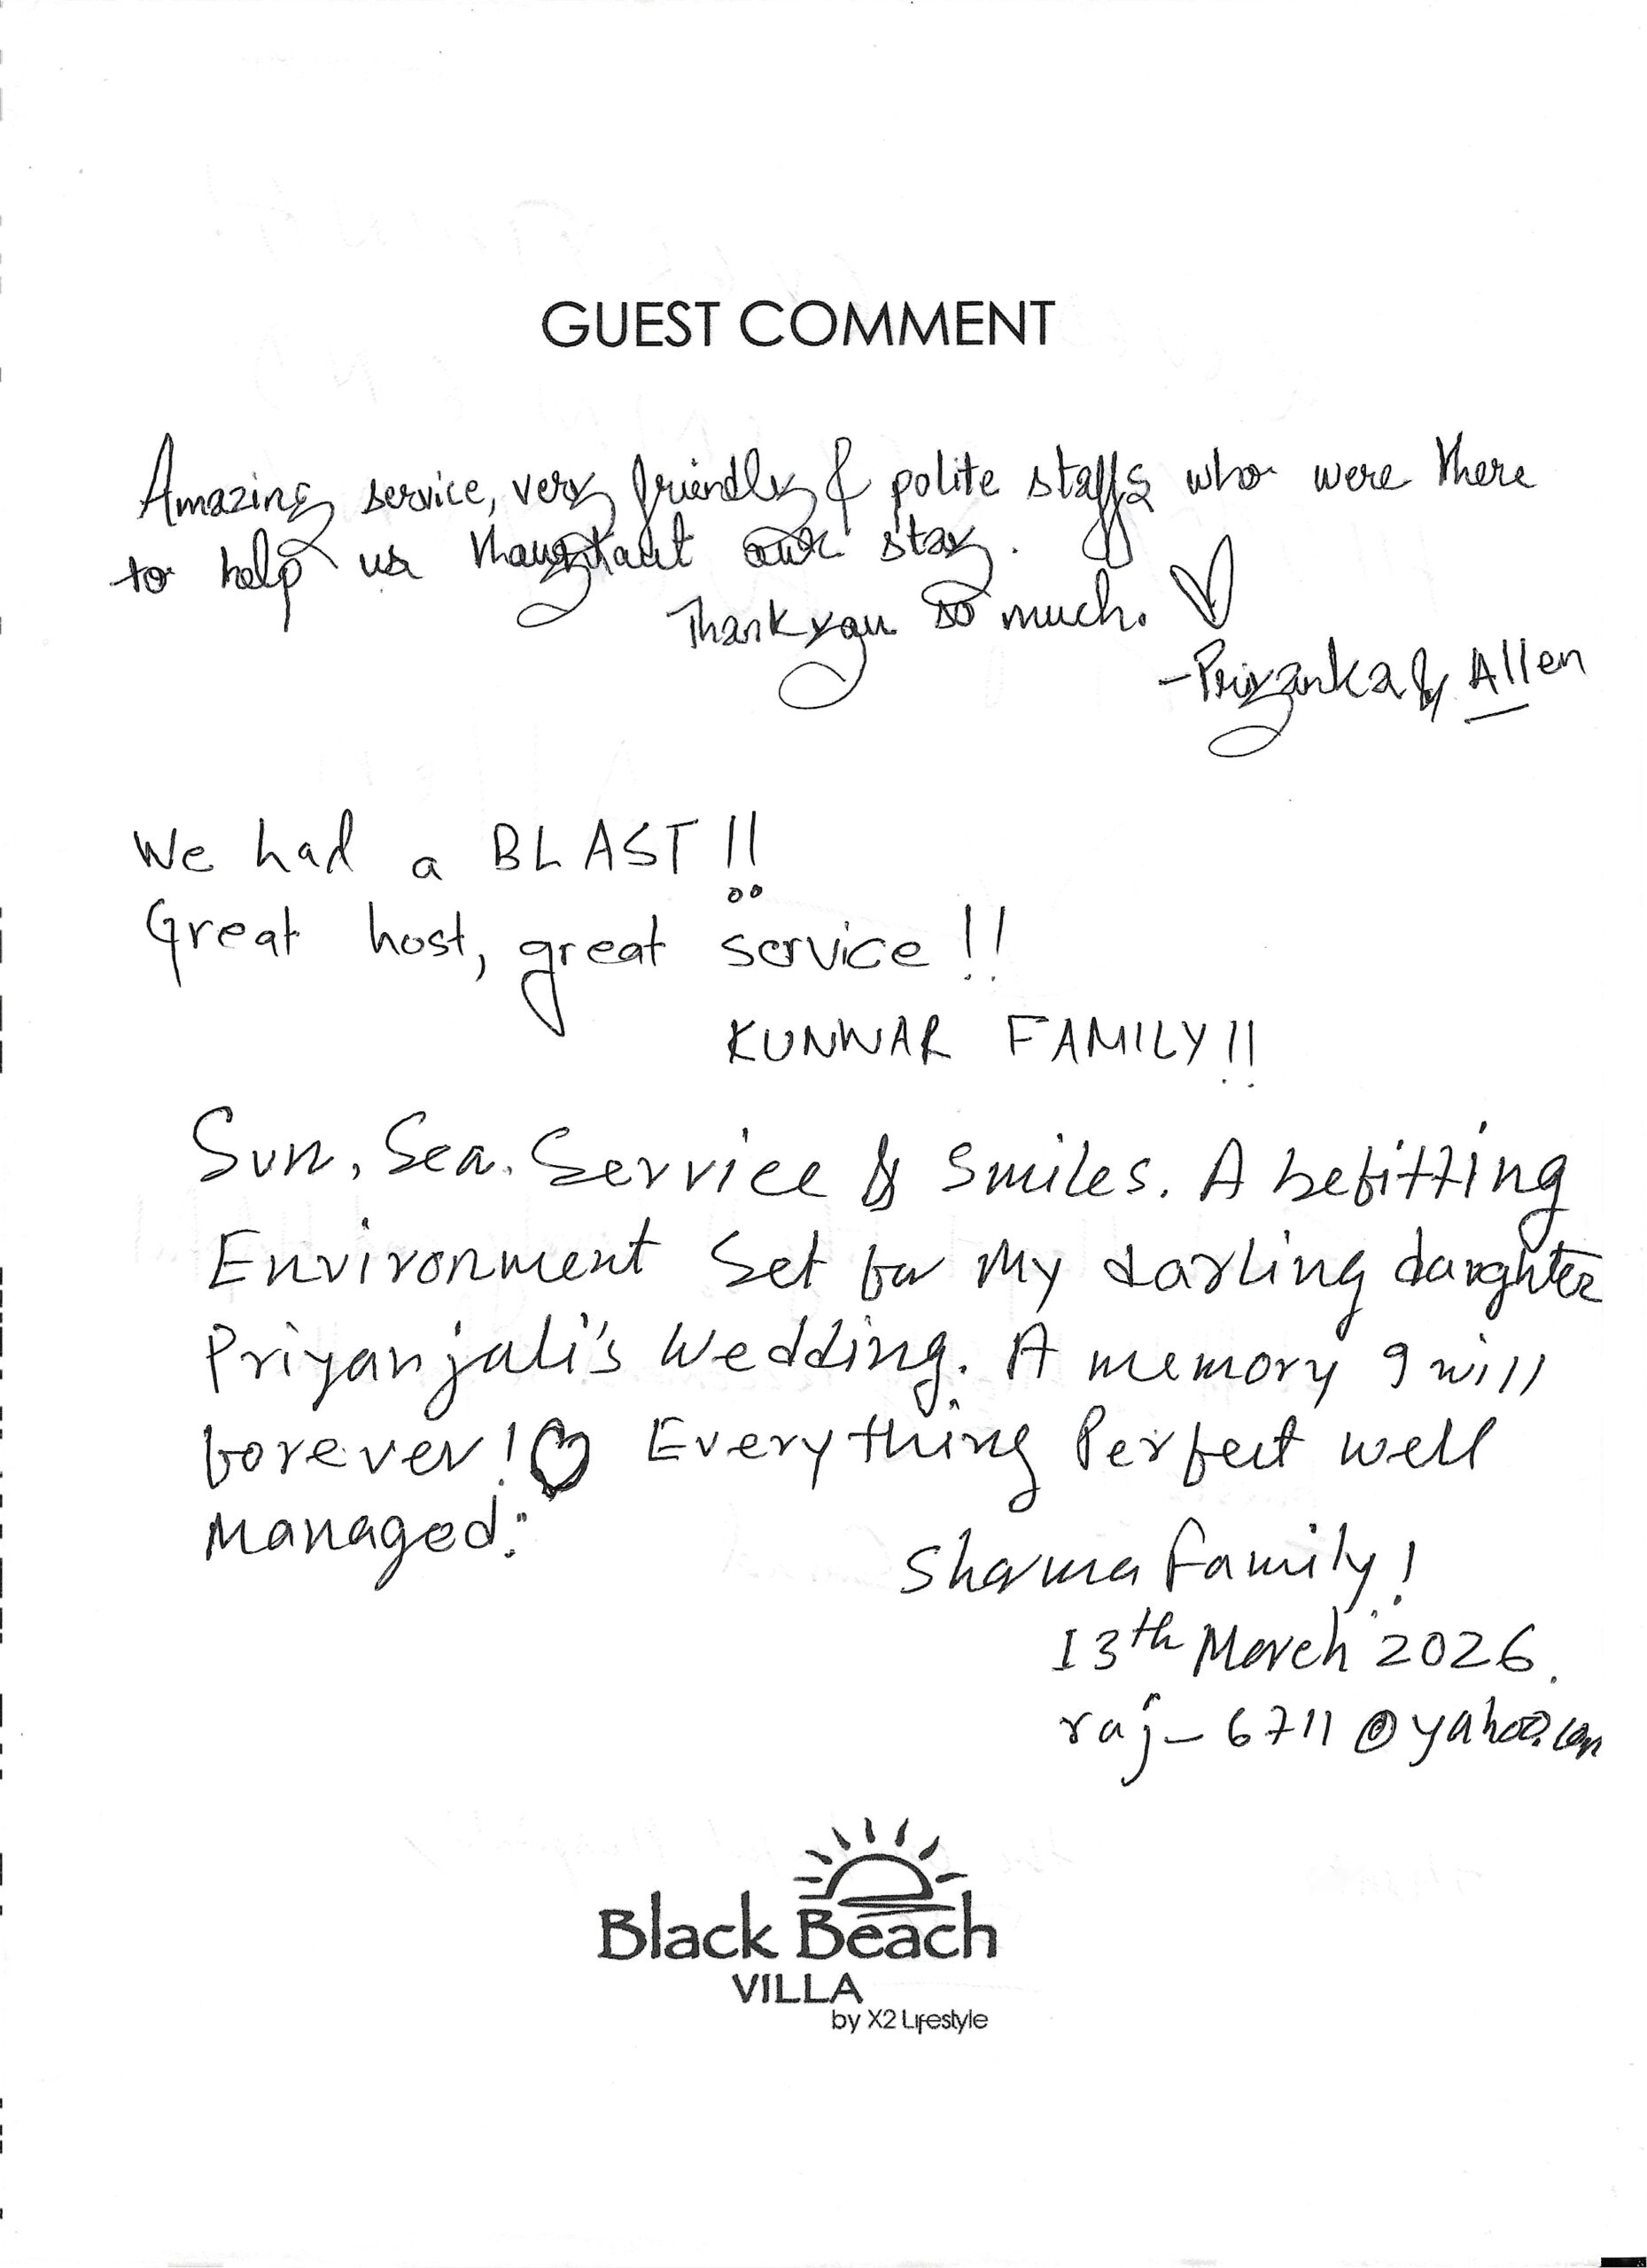 GUEST COMMENT
Amazing service, very friendly & polite staffs who were there
to help us throughout our stay.
Thank you so much. ♡
- Priyanka & Allen
We had a BLAST!!
Great host, great service!!
KUNWAR FAMILY!!
Sun, Sea. Service & Smiles. A befitting
Environment Set for My darling daughter
Priyanjali's Wedding. A memory I will
forever! ♡ Everything Perfect well
Managed.
Sharma Family!
13th March 2026.
raj_6711@yahoo.com
Black Beach
VILLA
by X2 Lifestyle